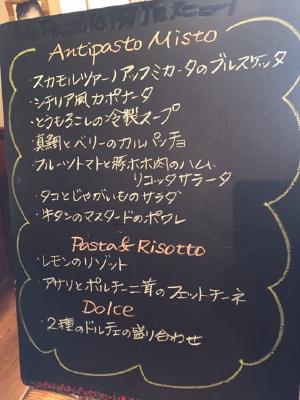 Antipasto Misto
・スカモルツァーノアッフミカータのブルスケッタ
・シチリア風カポナータ
・とうもろこしの冷製スープ
・真鯛とベリーのカルパッチョ
・フルーツトマトと豚ホホ肉のハム、
リコッタサラータ
・タコとじゃがいものサラダ
・牛タンのマスタードのポワレ
Pasta&Risotto
・レモンのリゾット
・アサリとポルチーニ茸のフェットチーネ
Dolce
・2種のドルチェの盛り合わせ